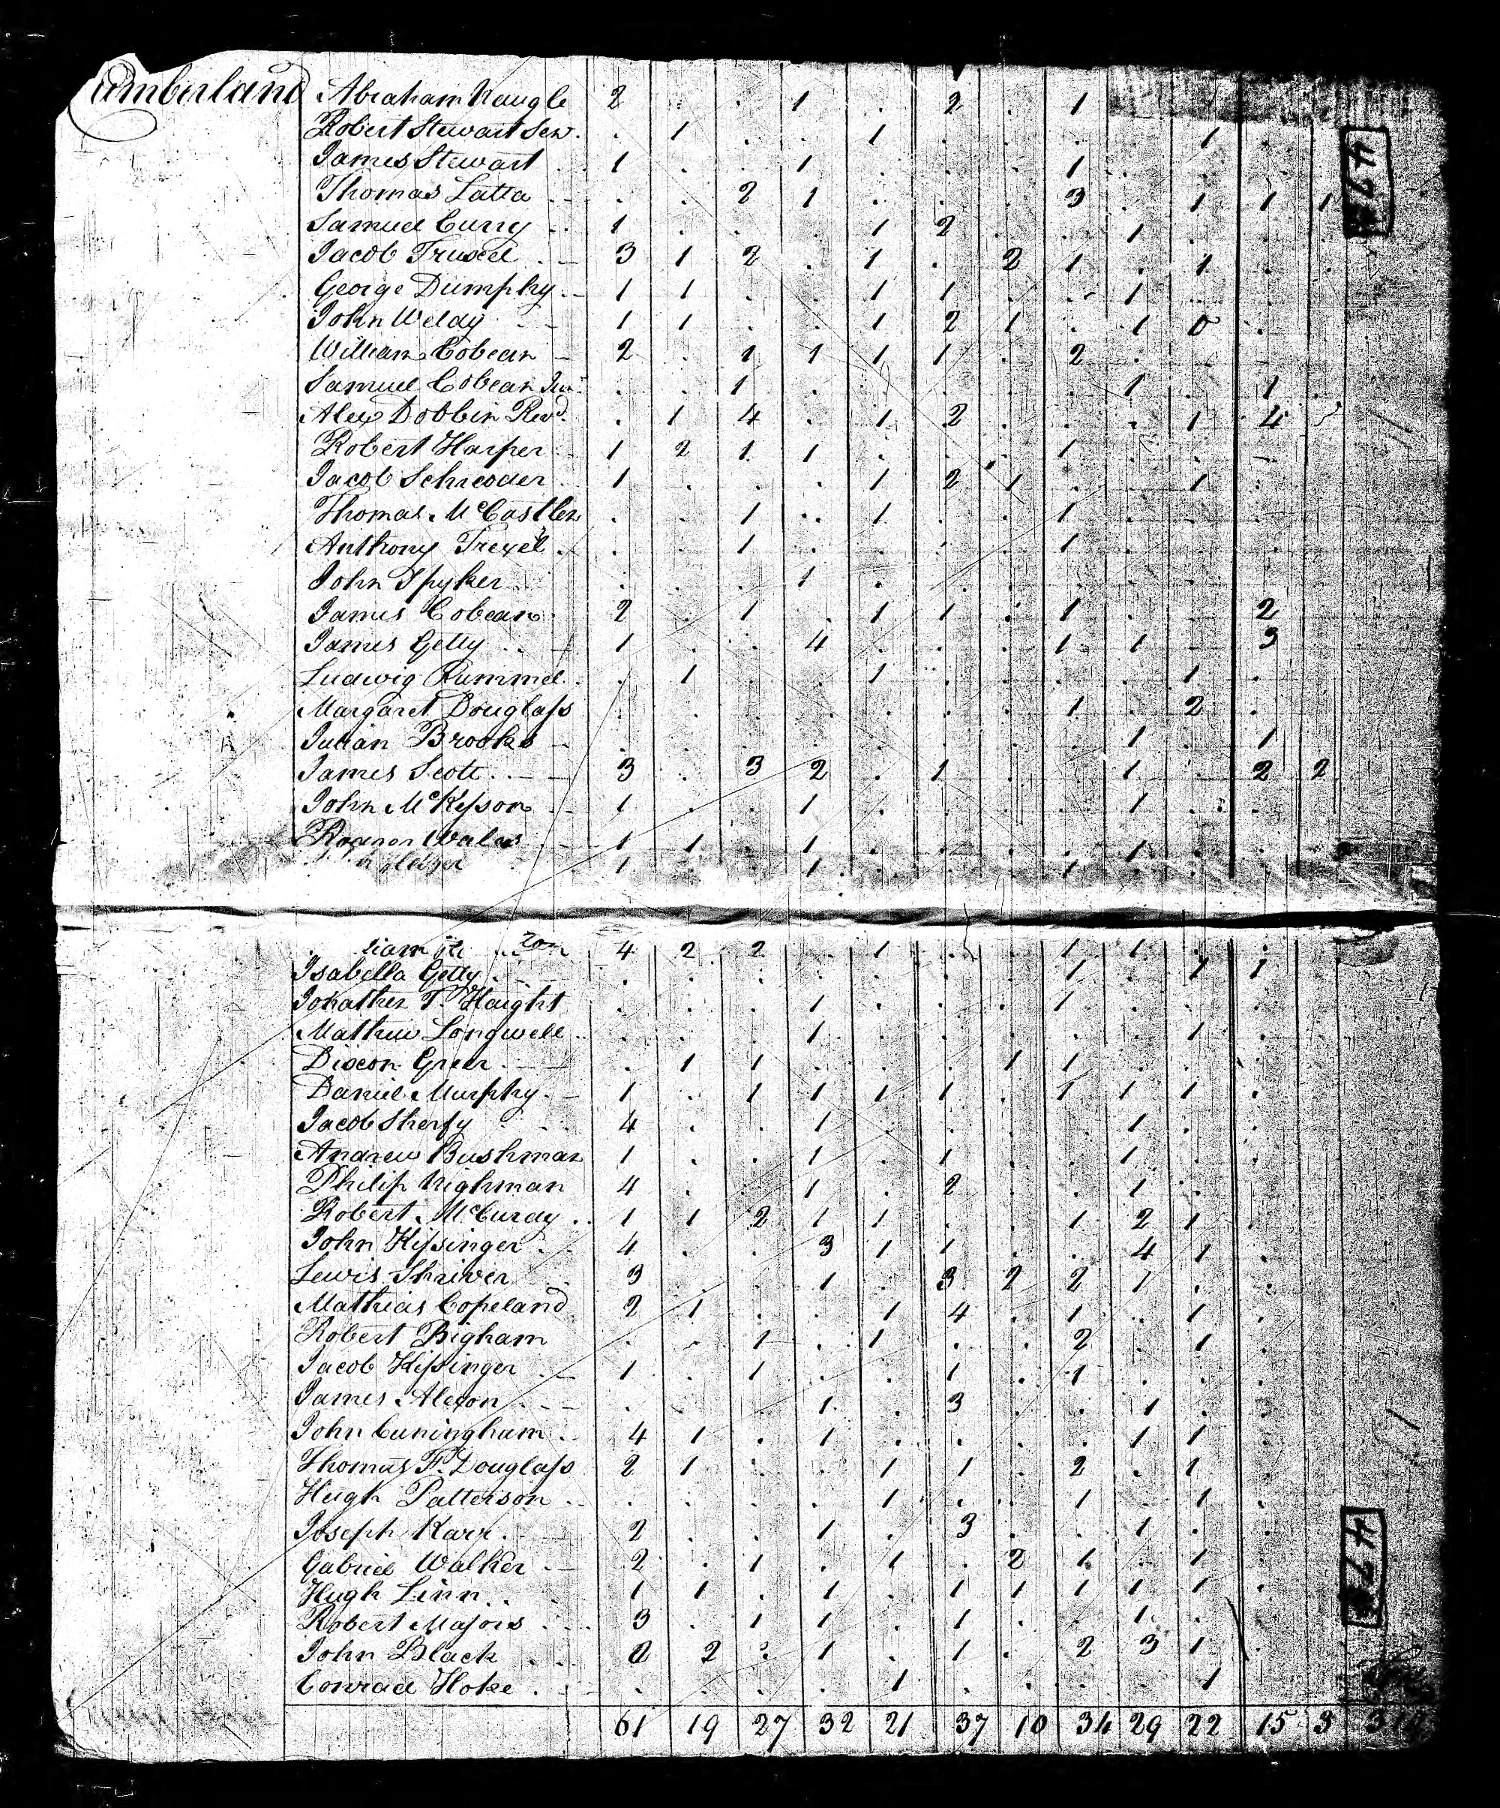 Cumberland Abraham Naugle 2 . . 1 . 2 . 1
Robert Stewart Sen. . 1 . . 1 . . . . 1
James Stewart 1 . . 1 . . . 1
Thomas Latta . . 2 1 . . . 3 . 1 1 1
Samuel Curry 1 . . . 1 2 . . 1
Jacob Truxel 3 1 2 . 1 . 2 1 . 1 . .
George Dumphy 1 1 . . 1 1 . . 1
John Weldy 1 1 . . 1 2 1 . 1 0 .
William Cobean 2 . 1 1 1 1 . 2 .
Samuel Cobean Jun. . . 1 . . . . . 1 . 1
Alex Dobbin Revd. . 1 4 . 1 2 . . . 1 4
Robert Harper 1 2 1 1 . . . 1 . .
Jacob Schreoder 1 . . . 1 2 1 . . 1 .
Thomas McCastlen . . 1 . 1 . . 1 . . .
Anthony Trexel . . 1 . . . . 1 . . .
John Spyker . . . 1 . . .
James Cobean 2 . 1 . 1 1 . 1 . . 2
James Getty 1 . . 4 . . . 1 1 . 3
Ludwig Rummel . 1 . . 1 . . . . 1 .
Margaret Douglass . . . . . . . 1 . 2 .
Julian Brooks . . . . . . . . 1 . 1
James Scott 3 . 3 2 . 1 . . 1 . 2 2
John McKesson 1 . . 1 . . . . 1 . .
Wales 1 1 . 1 . . . . 1 . .
1 . . 1 . . . 1 . .
4 2 2 . 1 . . 1 1 . .
Isabella Getty . . . . . . . 1 . 1 1
Jonathen T. Haight . . . 1 . . . 1 . . .
Mathew Longwell . . . 1 . . . . . 1 .
Dixon Greer . 1 1 . . . 1 1 . . .
Daniel Murphy 1 . 1 1 1 1 . 1 1 1 .
Jacob Sherfy 4 . . 1 . . . . 1 . .
Andrew Bushman 1 . . 1 . 1 . . 1 . .
Philip Highman 4 . . 1 . 2 . . 1 . .
Robert McCurdy 1 1 2 1 1 . . 1 2 1 .
John Kissinger 4 . . 3 1 1 . . 4 1 .
Lewis Shriver 3 . . 1 . 3 2 2 1 . .
Mathias Copeland 2 1 . . 1 4 . 1 . 1 .
Robert Bigham . . 1 . 1 . . 2 . 1 .
Jacob Kissinger 1 . 1 . . 1 . 1 . . .
James Alexon . . . 1 . 3 . . 1 . .
John Cuningham 4 1 . 1 . . . . 1 1 .
Thomas F. Douglass 2 1 . . 1 1 . 2 . 1
Hugh Patterson . . . . 1 . . 1 . 1 .
Joseph Karr 2 . . 1 . 3 . . 1 . .
Gabriel Walker 2 . 1 . 1 . 2 1 . 1
Hugh Linn 1 1 . 1 . 1 1 1 1 1 .
Robert Majors 3 . 1 1 . 1 . . 1 .
John Black 2 2 . 1 . 1 . 2 3 1 .
Conrad Hoke . . . . 1 . . . . 1
61 19 27 32 21 37 10 34 29 22 15 3